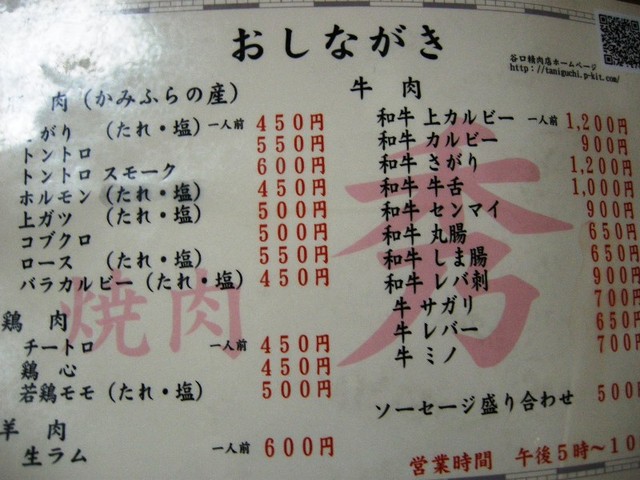 おしながき
谷口精肉店ホームページ
http://taniguchi.p-kit.com/
肉（かみふらの産）
がり （たれ・塩） 一人前 450円
トントロ 550円
トントロ スモーク 600円
ホルモン（たれ・塩） 450円
上ガツ （たれ・塩） 500円
コブクロ 500円
ロース （たれ・塩） 550円
バラカルビー（たれ・塩） 450円
鶏 肉
チートロ 一人前 450円
鶏 心 450円
若鶏モモ（たれ・塩） 500円
羊 肉
生ラム 一人前 600円
牛 肉
和牛 上カルビー 一人前 1,200円
和牛 カルビー 900円
和牛 さがり 1,200円
和牛 牛舌 1,000円
和牛 センマイ 900円
和牛 丸腸 650円
和牛 しま腸 650円
和牛 レバ刺 900円
牛 サガリ 700円
牛 レバー 650円
牛 ミノ 700円
ソーセージ盛り合わせ 500
営業時間 午後5時〜10
焼肉 秀